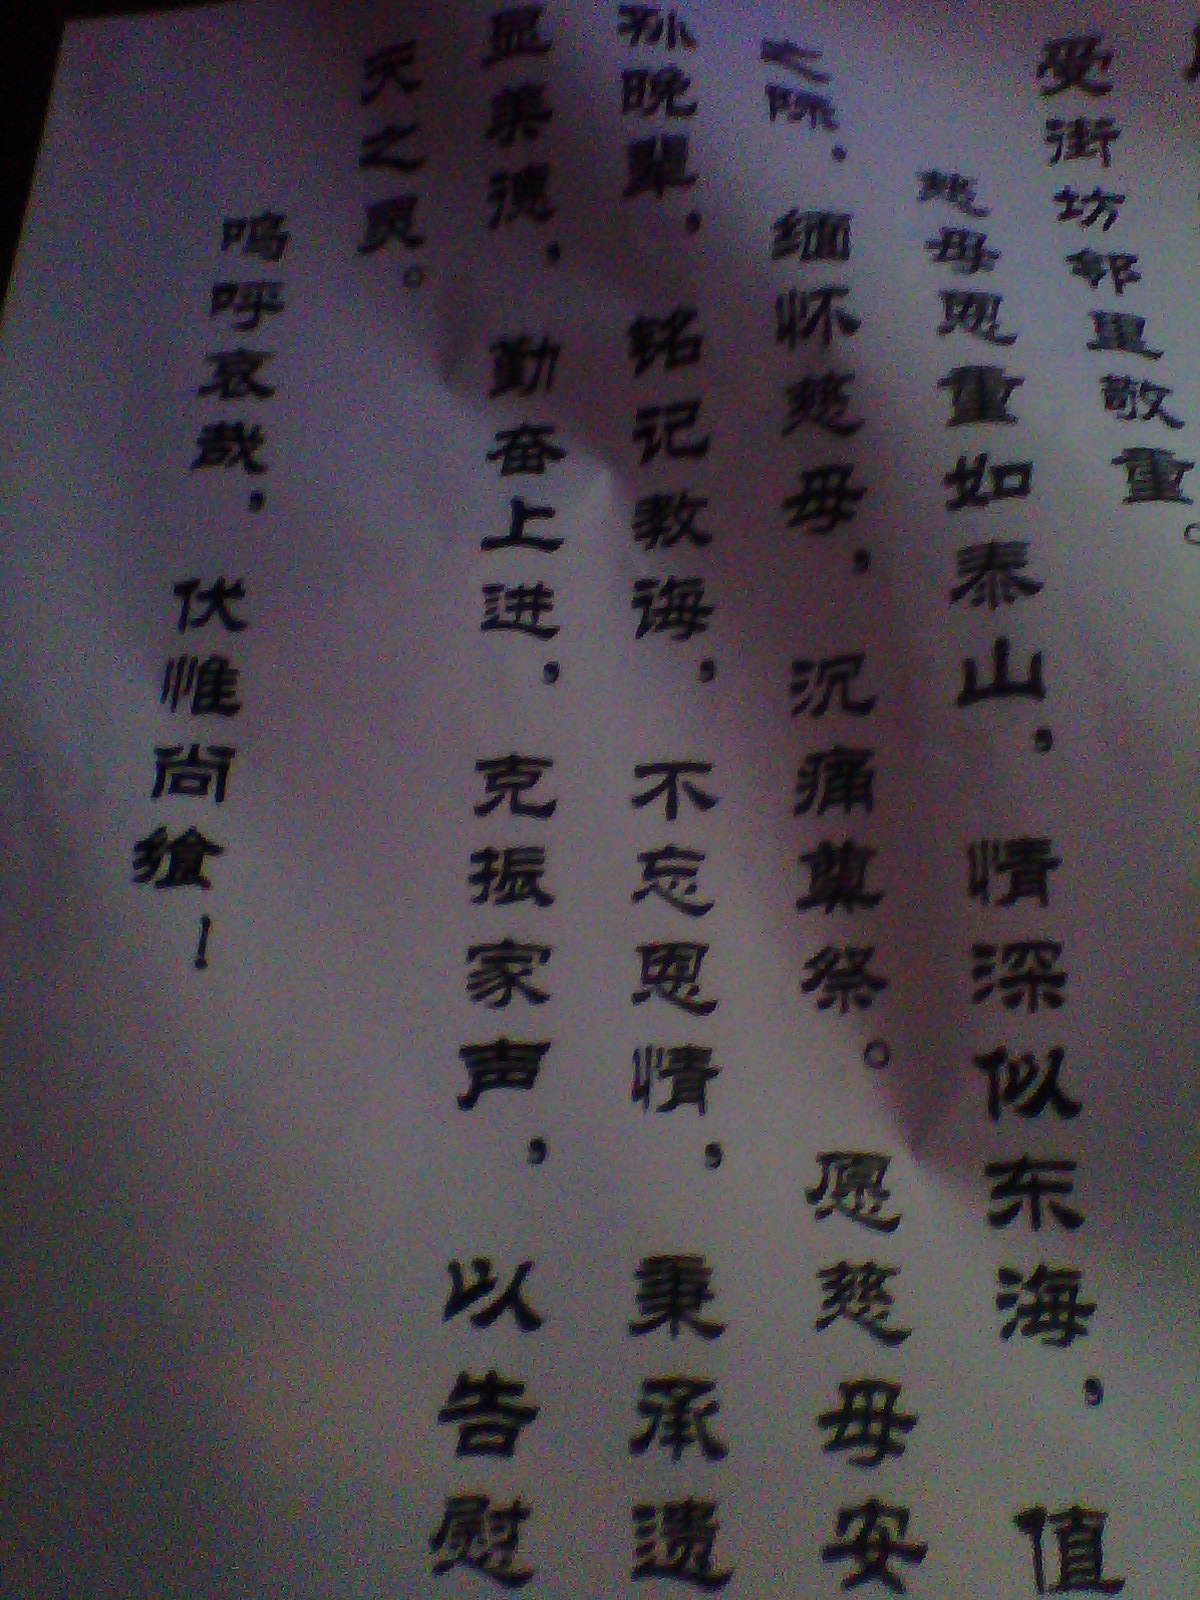 受街坊邻里敬重。
慈母恩重如泰山，情深似东海，值
之际，缅怀慈母，沉痛奠祭。愿慈母安
孙晚辈，铭记教诲，不忘恩情，秉承遗
显美德，勤奋上进，克振家声，以告慰
天之灵。
呜呼哀哉，伏惟尚飨！